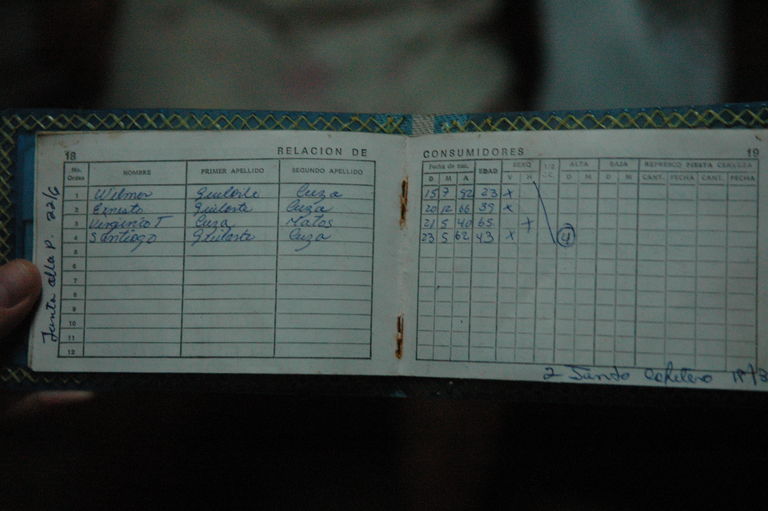 18 RELACION DE CONSUMIDORES 19
No. Orden NOMBRE PRIMER APELLIDO SEGUNDO APELLIDO Fecha de nac. EDAD SEXO ALTA BAJA REFRESCO FIESTA CERVEZA
D M A V H D M D M CANT. FECHA CANT. FECHA
1 Wilmer Cuza 15 7 82 23 x
2 Ernesto Cuza 20 12 66 39 x
3 Virginia T Cuza Matos 21 5 40 65 x
4 Santiago Cuza 23 5 62 43 x 4
5
6
7
8
9
10
11
12
Junta olla p. 22/6
2 Cafetera